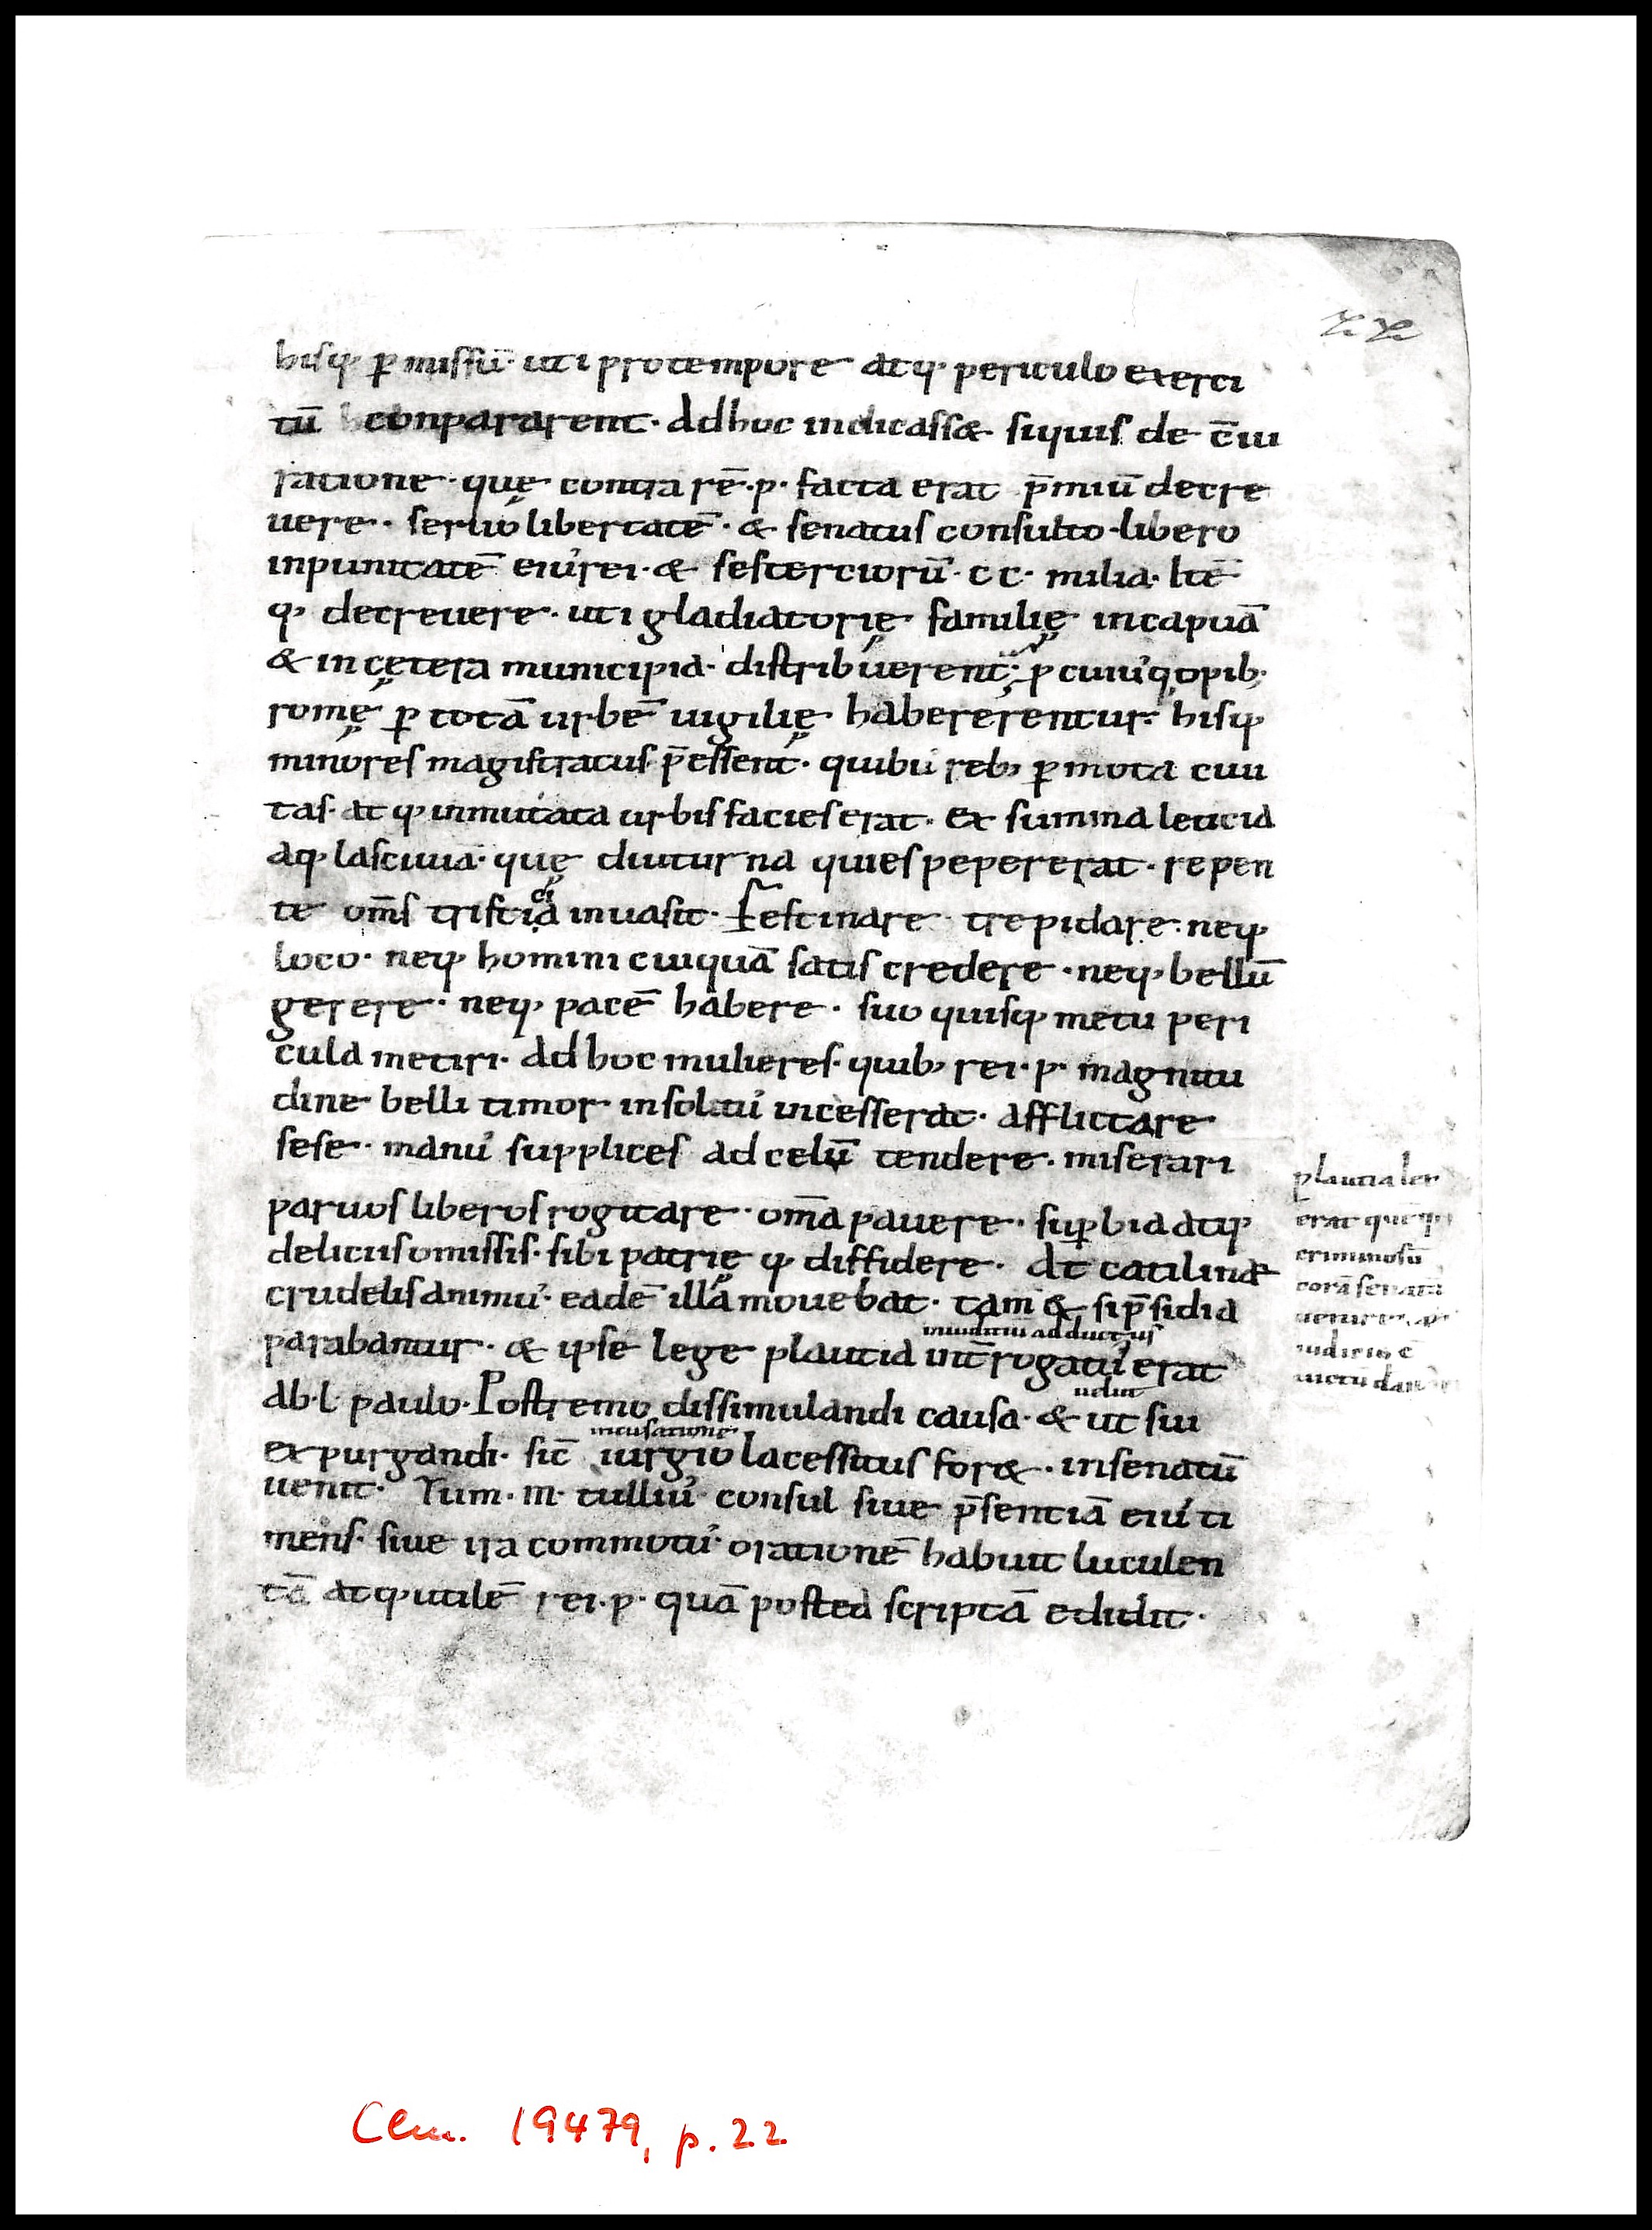 22
bisq; ꝑmissū· uti pro tempore atq; periculo exerci
tū conpararent· Ad hoc indicass& siquis de c̄iu
ratione· quę contra rē·p· facta erat p̄miū decre
uere· seruo libertatē· & senatus consulto libero
inpunitatē eiu' rei· & sesterciorū· cc· milia· Itē
q; decreuere· uti gladiatorię familię in capuā
& in cętera municipia· distribuerent· ꝓ cuiu'q; opib;
romę ꝑ totā urbē uigilię habererentur· hisq;
minores magistratus p̄essent· quibu' reb; ꝑmota ciui
tas· atq; inmutata urbis facies erat· Ex summa leticia
aq; lasciuia· quę diuturna quies pepererat· repen
te om̄s tristicia inuasit· Festinare trepidare· neq;
loco· neq; homini cuiquā satis credere· neq; bellū
gerere· neq; pacē habere· suo quisq; metu peri
cula metiri· Ad hoc mulieres· quib; rei·p· magnitu
dine belli timor insolitu' incesserat· afflictare
sese· manu' supplices ad celū tendere· miserari
paruos liberos rogitare· om̄a pauere· suꝑbia atq;
deliciis omissis· sibi patrię q; diffidere· At catilinæ
crudelis animu'· eadē illa mouebat· tam & si p̄sidia
parabantur· & ipse lege plautia int̄rogatu' erat
adduct' us
ab·l· paulo· Postremo dissimulandi causa· & ut sui
uelut
expurgandi· sic̄ iurgio lacessitus for&· in senatū
incusatione
uenit· Tum· m· tulliu' consul siue p̄sentiā eiu' ti
mens· siue ira commotu' orationē habuit luculen
tā atq; utilē rei·p· quā postea scriptā edidit·
plautia lex
erat
criminosū
corā
Clm. 19479, p. 22